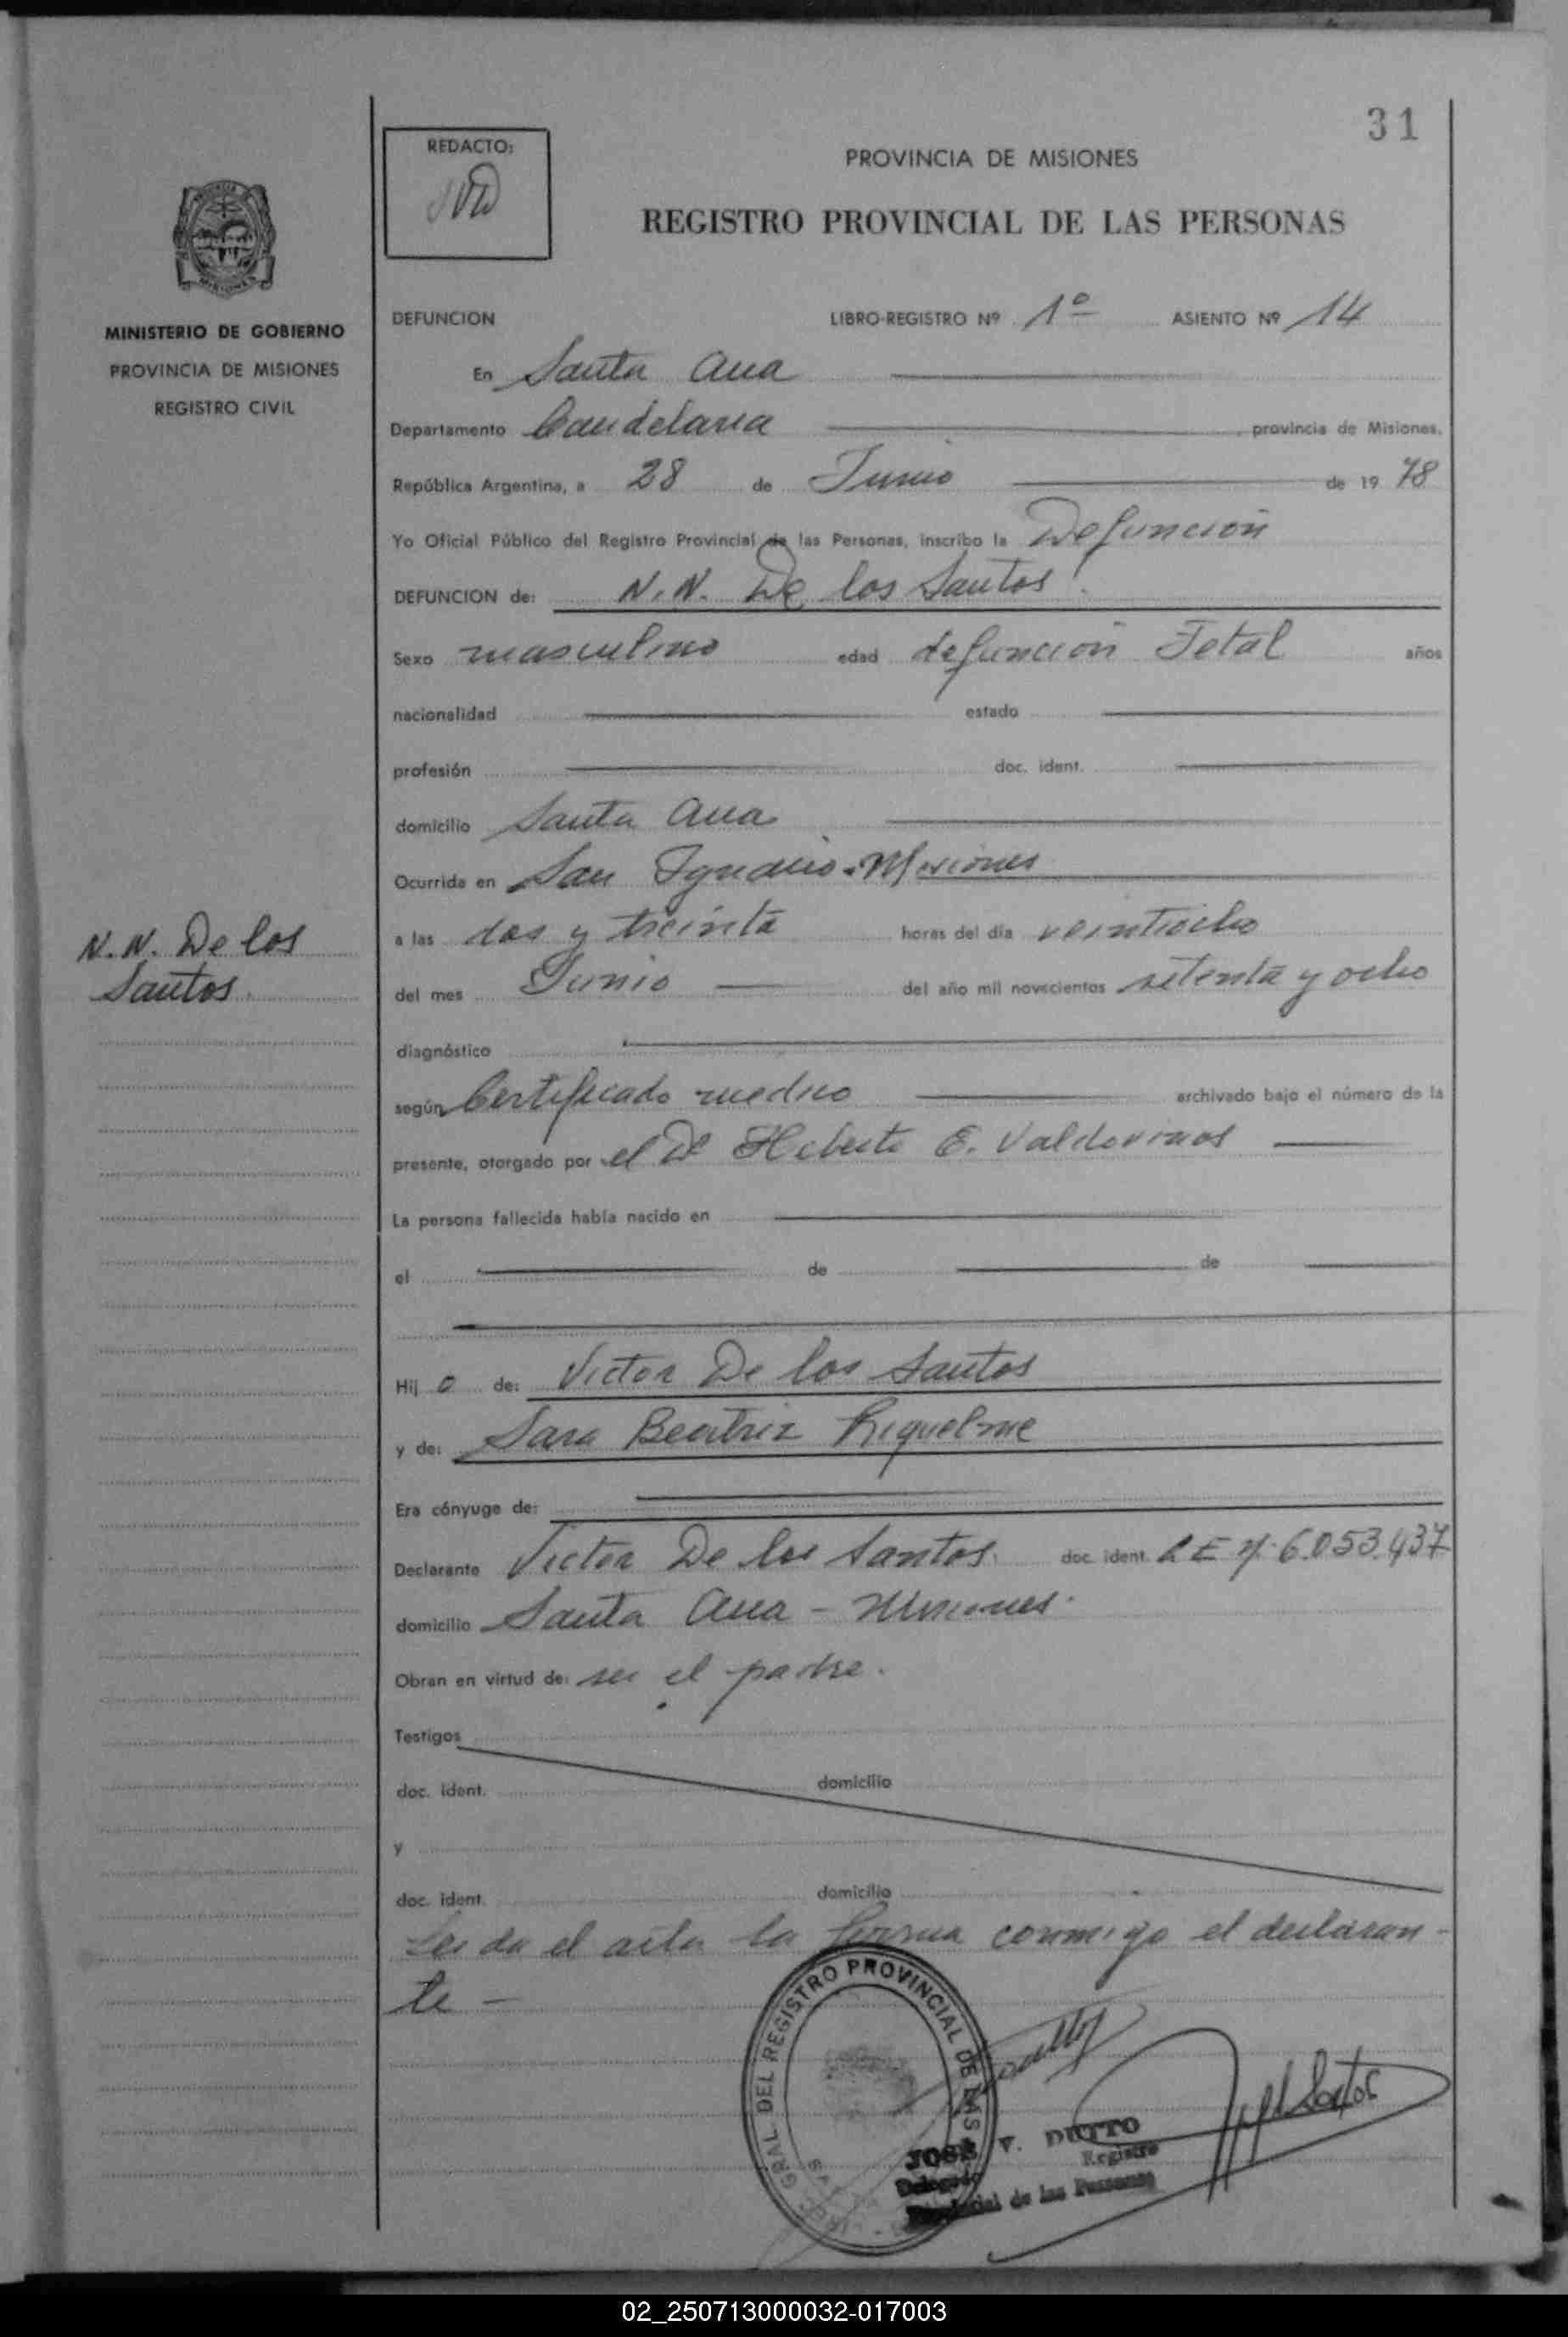 31
REDACTO:
PROVINCIA DE MISIONES
REGISTRO PROVINCIAL DE LAS PERSONAS
MINISTERIO DE GOBIERNO
PROVINCIA DE MISIONES
REGISTRO CIVIL
DEFUNCION LIBRO-REGISTRO Nº 1º ASIENTO Nº 14
En Santa Ana
Departamento Candelaria provincia de Misiones.
República Argentina, a 28 de Junio de 19 78
Yo Oficial Público del Registro Provincial de las Personas, inscribo la Defunción
DEFUNCION de: N.N. De los Santos.
Sexo masculino edad defunción Fetal años
nacionalidad estado
profesión doc. ident.
domicilio Santa Ana
Ocurrida en San Ignacio - Misiones
N.N. De los
Santos.
a las dos y treinta horas del día veintiocho
del mes Junio del año mil novecientos setenta y ocho
diagnóstico
según Certificado medico archivado bajo el número de la
presente, otorgado por el Dr Heberto E. Valdovinos
La persona fallecida había nacido en
el de de
Hij o de: Victor De los Santos
y de: Sara Beatriz Riquelme
Era cónyuge de:
Declarante Victor De los Santos. doc. ident. L E Nº 6.053.437
domicilio Santa Ana - Misiones.
Obran en virtud de: ser el padre.
Testigos
doc. ident. domicilio
y
doc. ident. domicilio
Leida el acta la firma conmigo el declaran-
te -
GRAL. DEL REGISTRO PROVINCIAL DE LAS
JOSE V. DUTTO
Delegado Registro
Provincial de las Personas
02_250713000032-017003